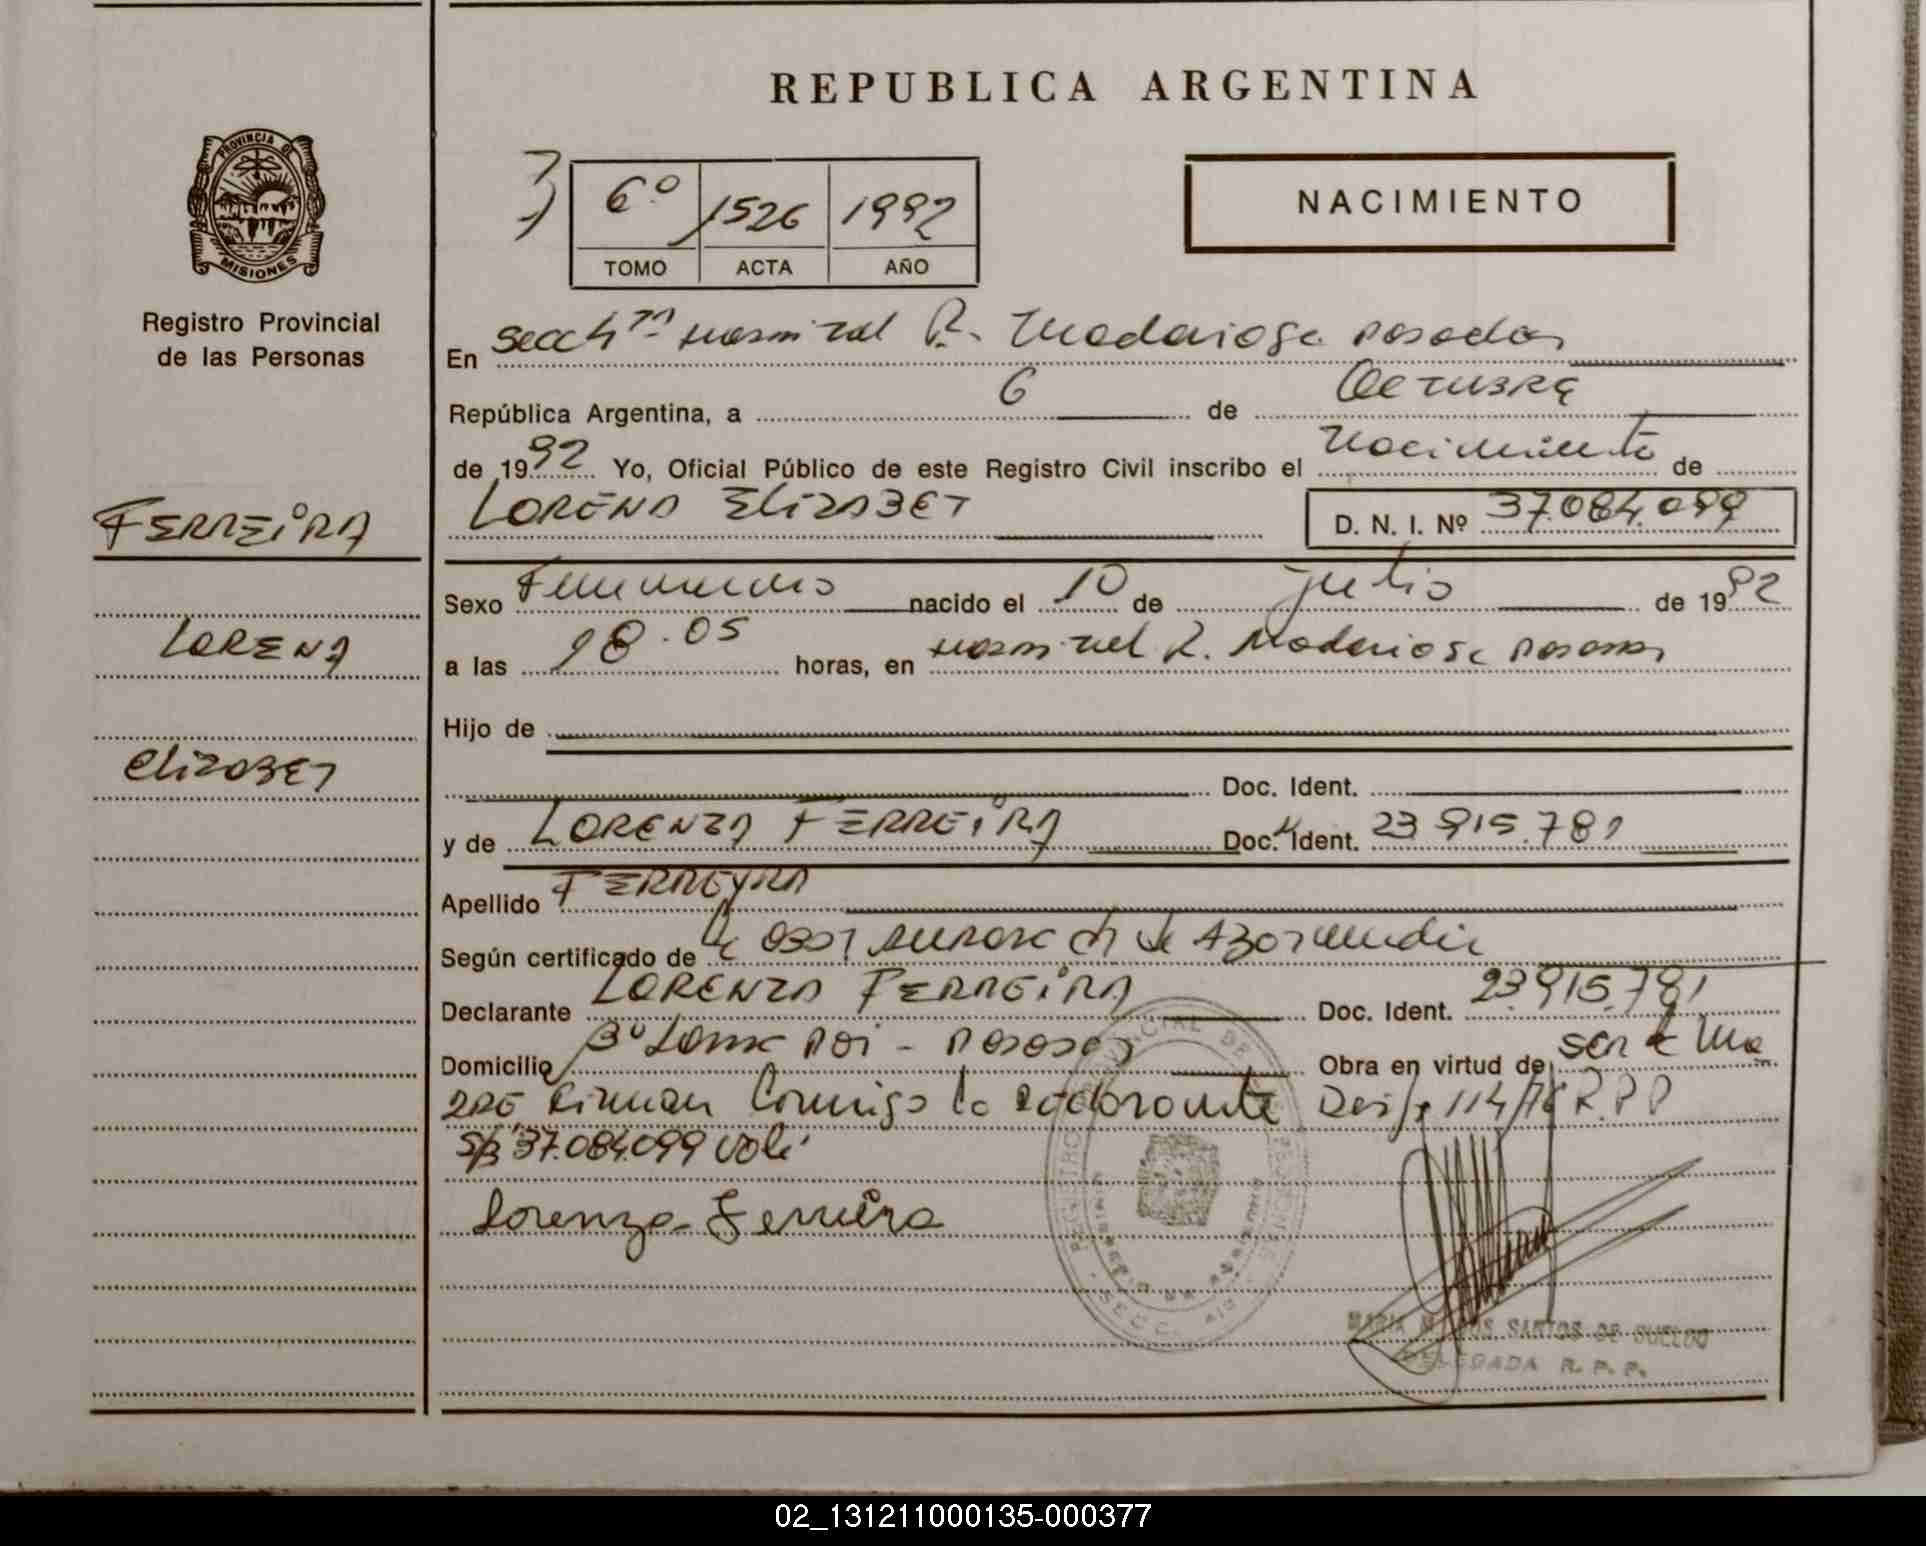 REPUBLICA ARGENTINA
PROVINCIA D
MISIONES
Registro Provincial
de las Personas
6º 1526 1992
TOMO ACTA AÑO
NACIMIENTO
En Secc 4ta Hospital R. Madariaga Posadas
República Argentina, a 6 de Octubre
de 1992 Yo, Oficial Público de este Registro Civil inscribo el Nacimiento de
LORENA ELIZABET D. N. I. Nº 37.084.099
FERREIRA
LORENA
ELIZABET
Sexo Femenino nacido el 10 de julio de 1992
a las 18.05 horas, en Hospital R. Madariaga Posadas
Hijo de
Doc. Ident.
y de LORENZA FERREIRA Doc. Ident. 23 915.781
Apellido FERREYRA
Según certificado de
Declarante LORENZA FERREIRA Doc. Ident. 23.915.781
Domicilio Bº Loma Poi - Posadas Obra en virtud de ser la Ma
dre Firman Conmigo la declarante 114/76 R.P.P
37.084.099 vale
Lorenza Ferreira
SANTOS DE
DELEGADA R. P. P.
02_131211000135-000377